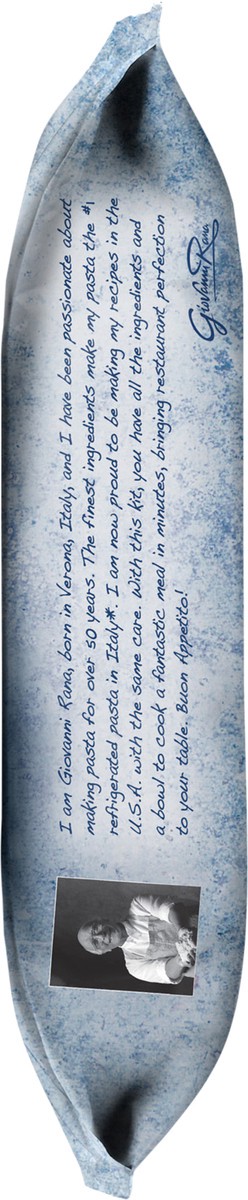 I am Giovanni Rana, born in Verona, Italy, and I have been passionate about
making pasta for over 50 years. The finest ingredients make my pasta the #1
refrigerated pasta in Italy*. I am now proud to be making my recipes in the
U.S.A. with the same care. With this kit, you have all the ingredients and
a bowl to cook a fantastic meal in minutes, bringing restaurant perfection
to your table. Buon Appetito!
Giovanni Rana